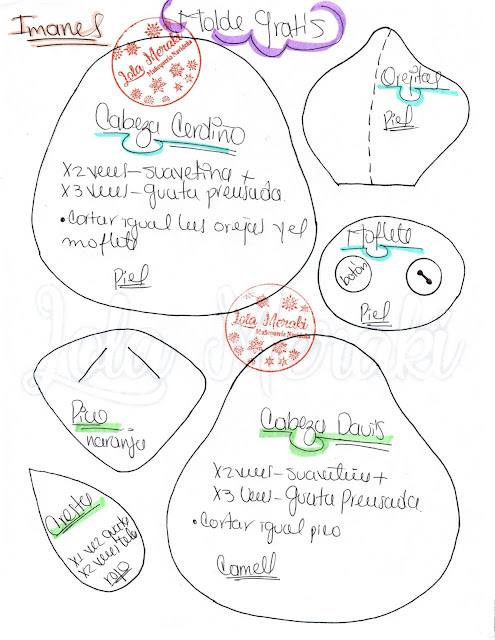 Imanes
Molde Gratis
Lola Meraki
Muñequería Navideña
Cabeza Cerdito
x2 veces-suavetina +
x3 veces-guata prensada
• Cortar igual las orejas y el
moflete
Piel
Orejitas
Piel
Moflete
botón
Piel
Lola Meraki
Muñequería Navideña
Pico
naranja
Cabeza Davis
x2 veces-suavetina +
x3 veces-guata prensada
• Cortar igual pico
Camell
Cresta
x1 vez guata
x2 veces tela
rojo
Lola Meraki